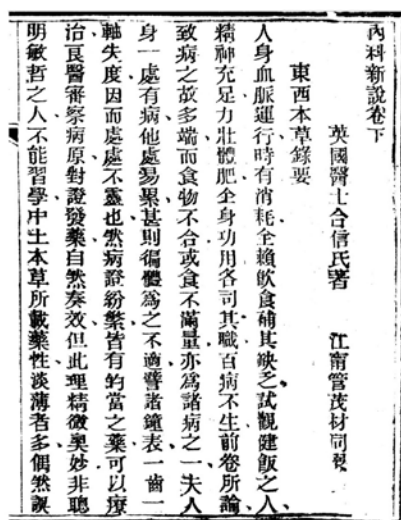 內科新說卷下
英國醫士合信氏著 江甯管茂材同撰
東西本草錄要
人身血脈運行時有消耗全賴飲食補其缺乏試觀健飯之人、
精神充足力壯體肥全身功用各司其職百病不生前卷所論、
致病之故多端而食物不合或食不滿量亦爲諸病之一夫人
身一處有病他處易累甚則徧體爲之不適譬諸鐘表一齒一
軸失度因而處處不靈也然病證紛繁皆有的當之藥可以療
治良醫審察病原對證發藥自然奏效但此理精微奧妙非聰
明敏哲之人不能習學中土本草所載藥性淡薄者多偶然誤